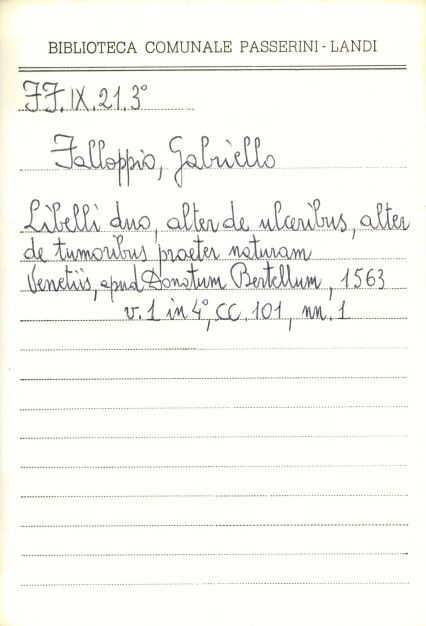 BIBLIOTECA COMUNALE PASSERINI - LANDI
FF.IX.21.3°
Falloppio, Gabriello
Libelli duo, alter de ulceribus, alter
de tumoribus praeter naturam
Venetiis, apud Donatum Bertellum, 1563
v.1 in 4°, CC. 101, nn. 1